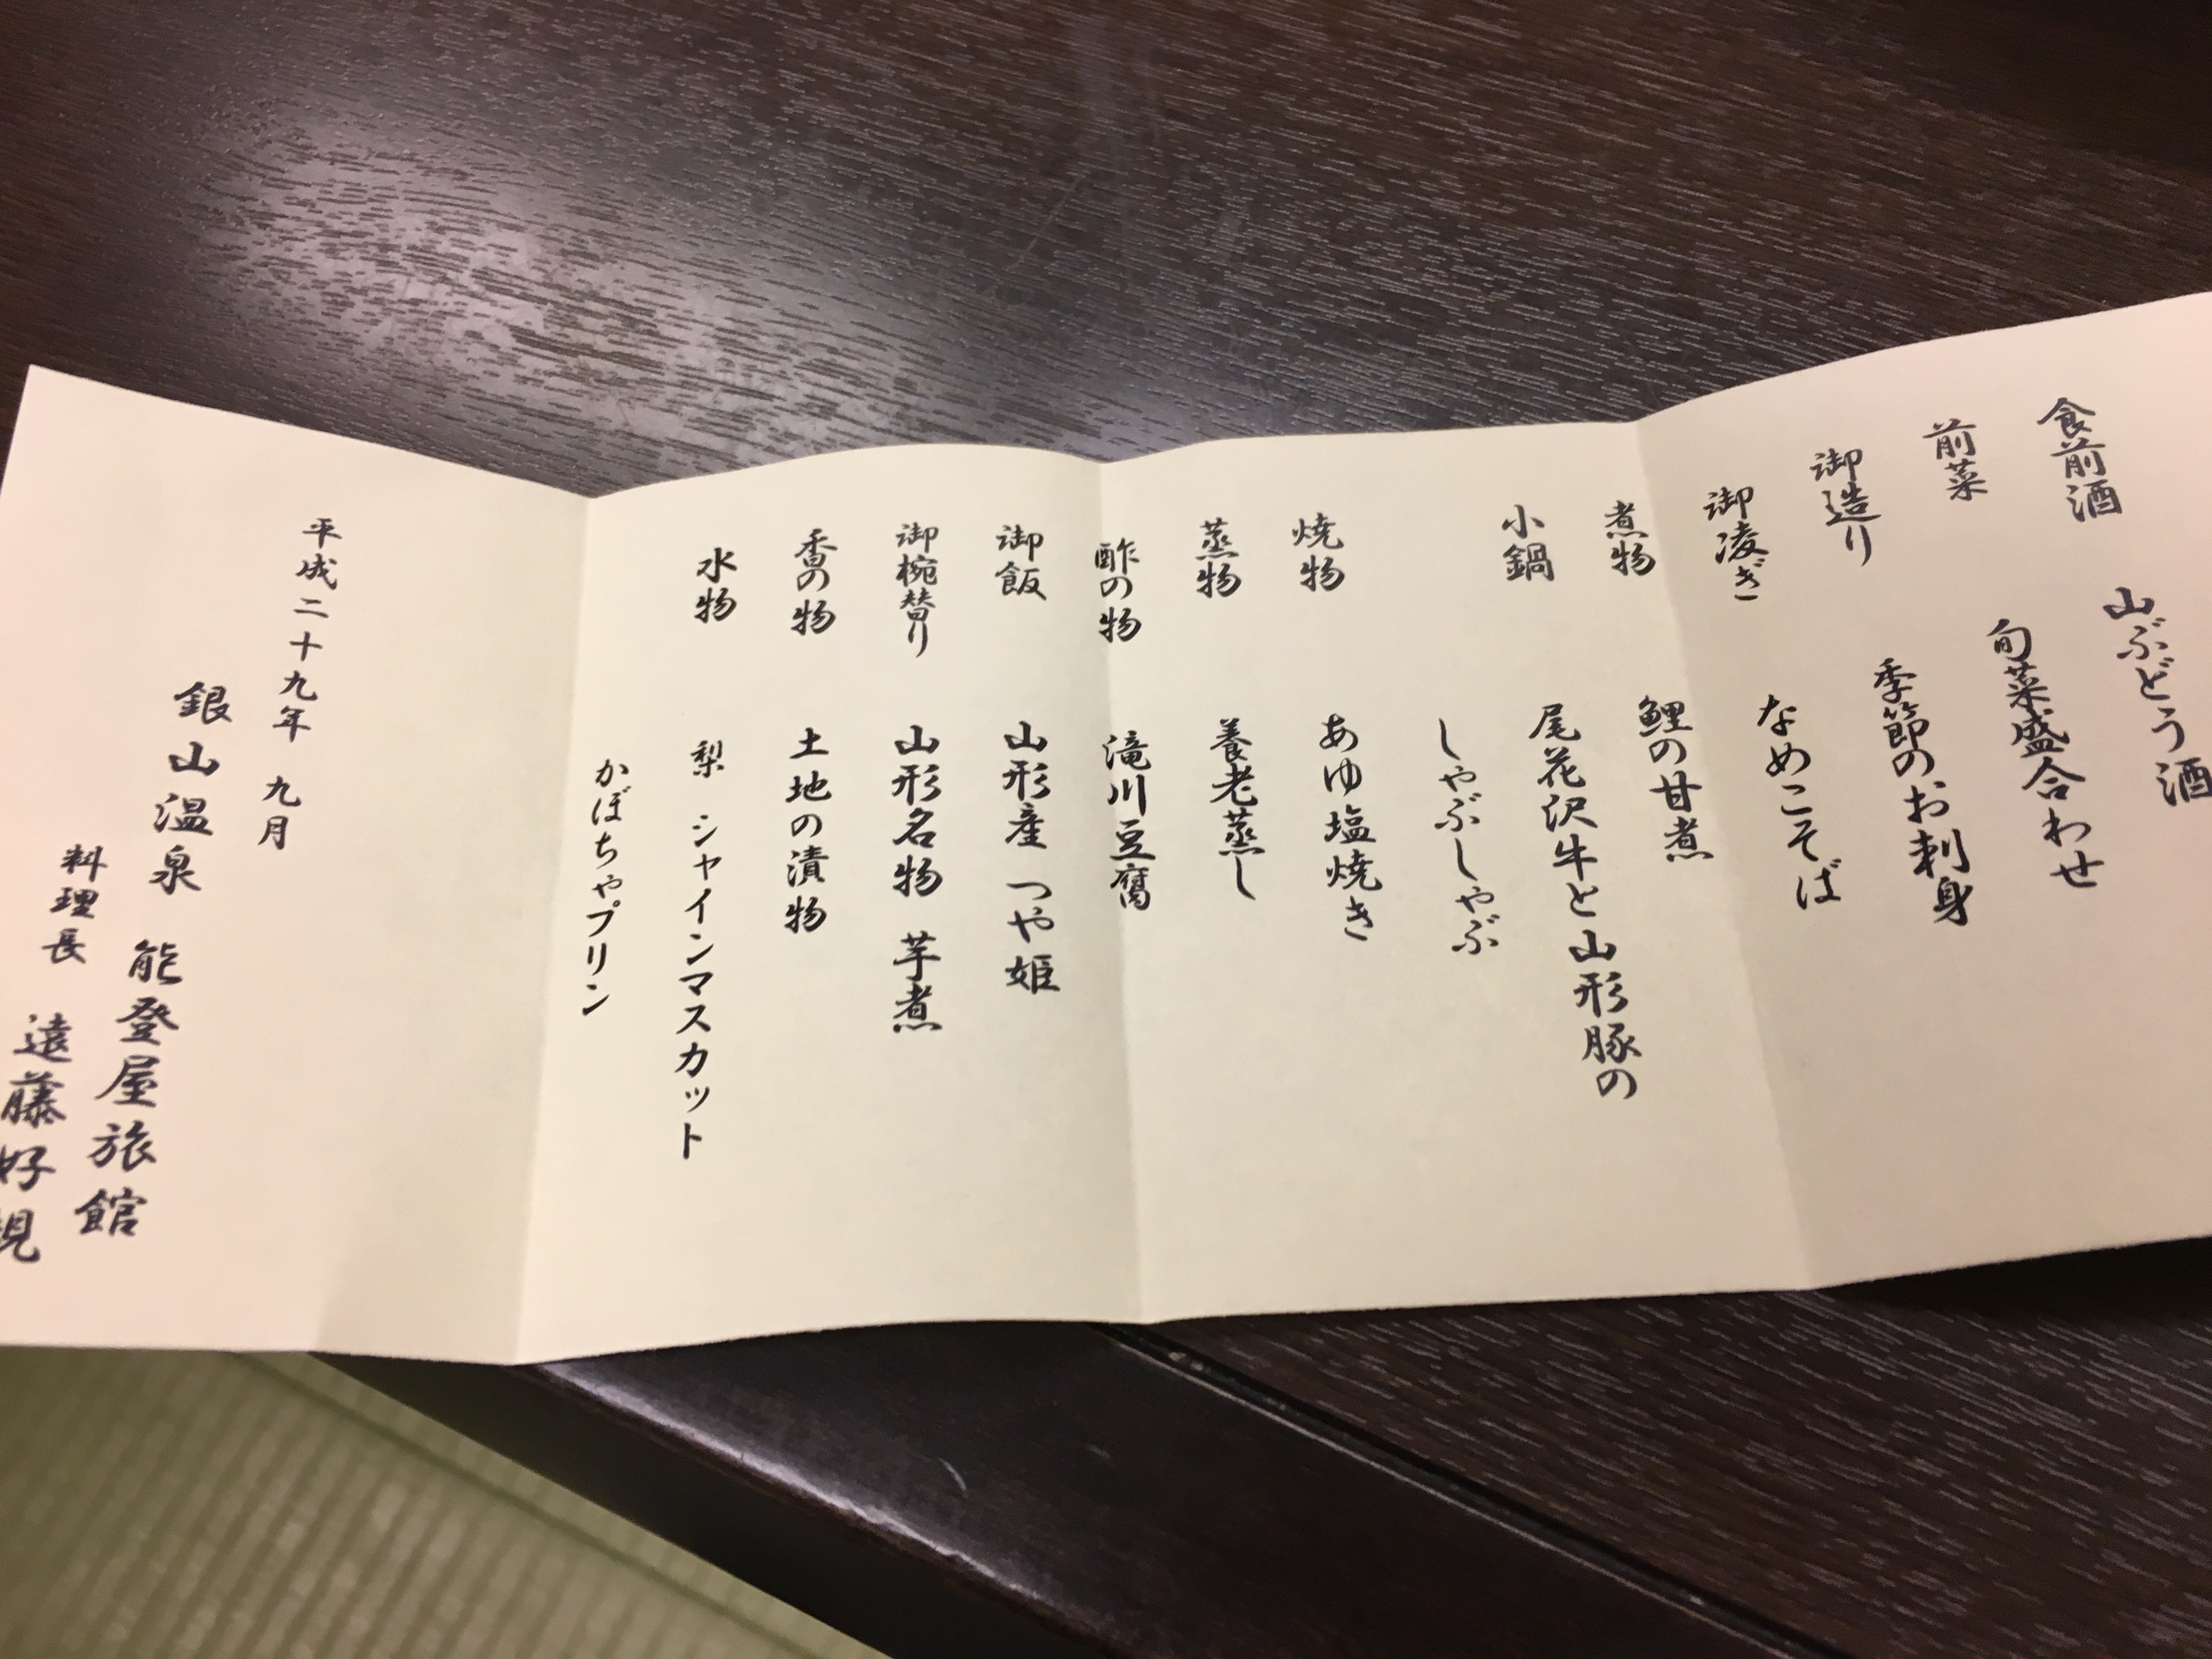 食前酒 山ぶどう酒
前菜 旬菜盛合わせ
御造り 季節のお刺身
御凌ぎ なめこそば
煮物 鯉の甘煮
小鍋 尾花沢牛と山形豚の
しゃぶしゃぶ
焼物 あゆ塩焼き
蒸物 養老蒸し
酢の物 滝川豆腐
御飯 山形産 つや姫
御椀替り 山形名物 芋煮
香の物 土地の漬物
水物 梨 シャインマスカット
かぼちゃプリン
平成二十九年 九月
銀山温泉 能登屋旅館
料理長 遠藤好